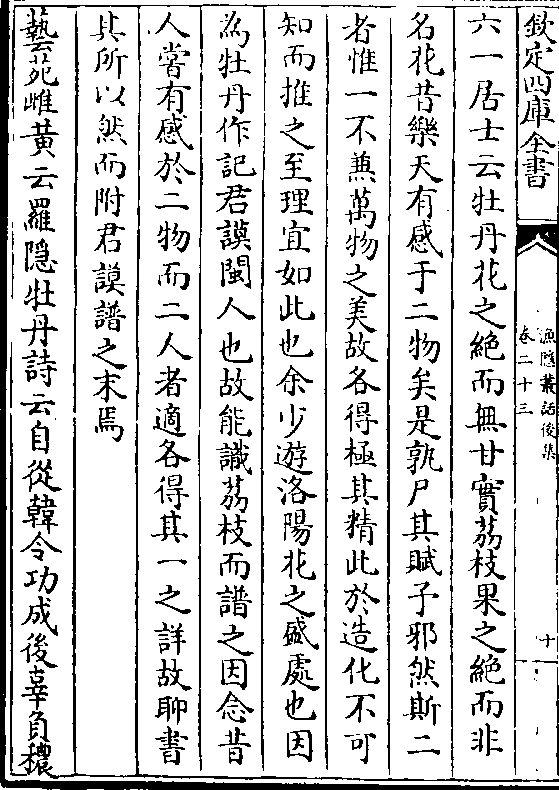 欽定四庫全書
漁隱叢話後集
卷二十三
十
六一居士云牡丹花之絶而無甘實荔枝果之絶而非
名花昔樂天有感于二物矣是孰尸其賦予邪然斯二
者惟一不兼萬物之美故各得極其精此於造化不可
知而推之至理宜如此也余少遊洛陽花之盛處也因
為牡丹作記君謨閩人也故能識荔枝而譜之因念昔
人嘗有感於二物而二人者適各得其一之詳故聊書
其所以然而附君謨譜之末焉
藝苑雌黄云羅隠牡丹詩云自從韓令功成後辜負穠